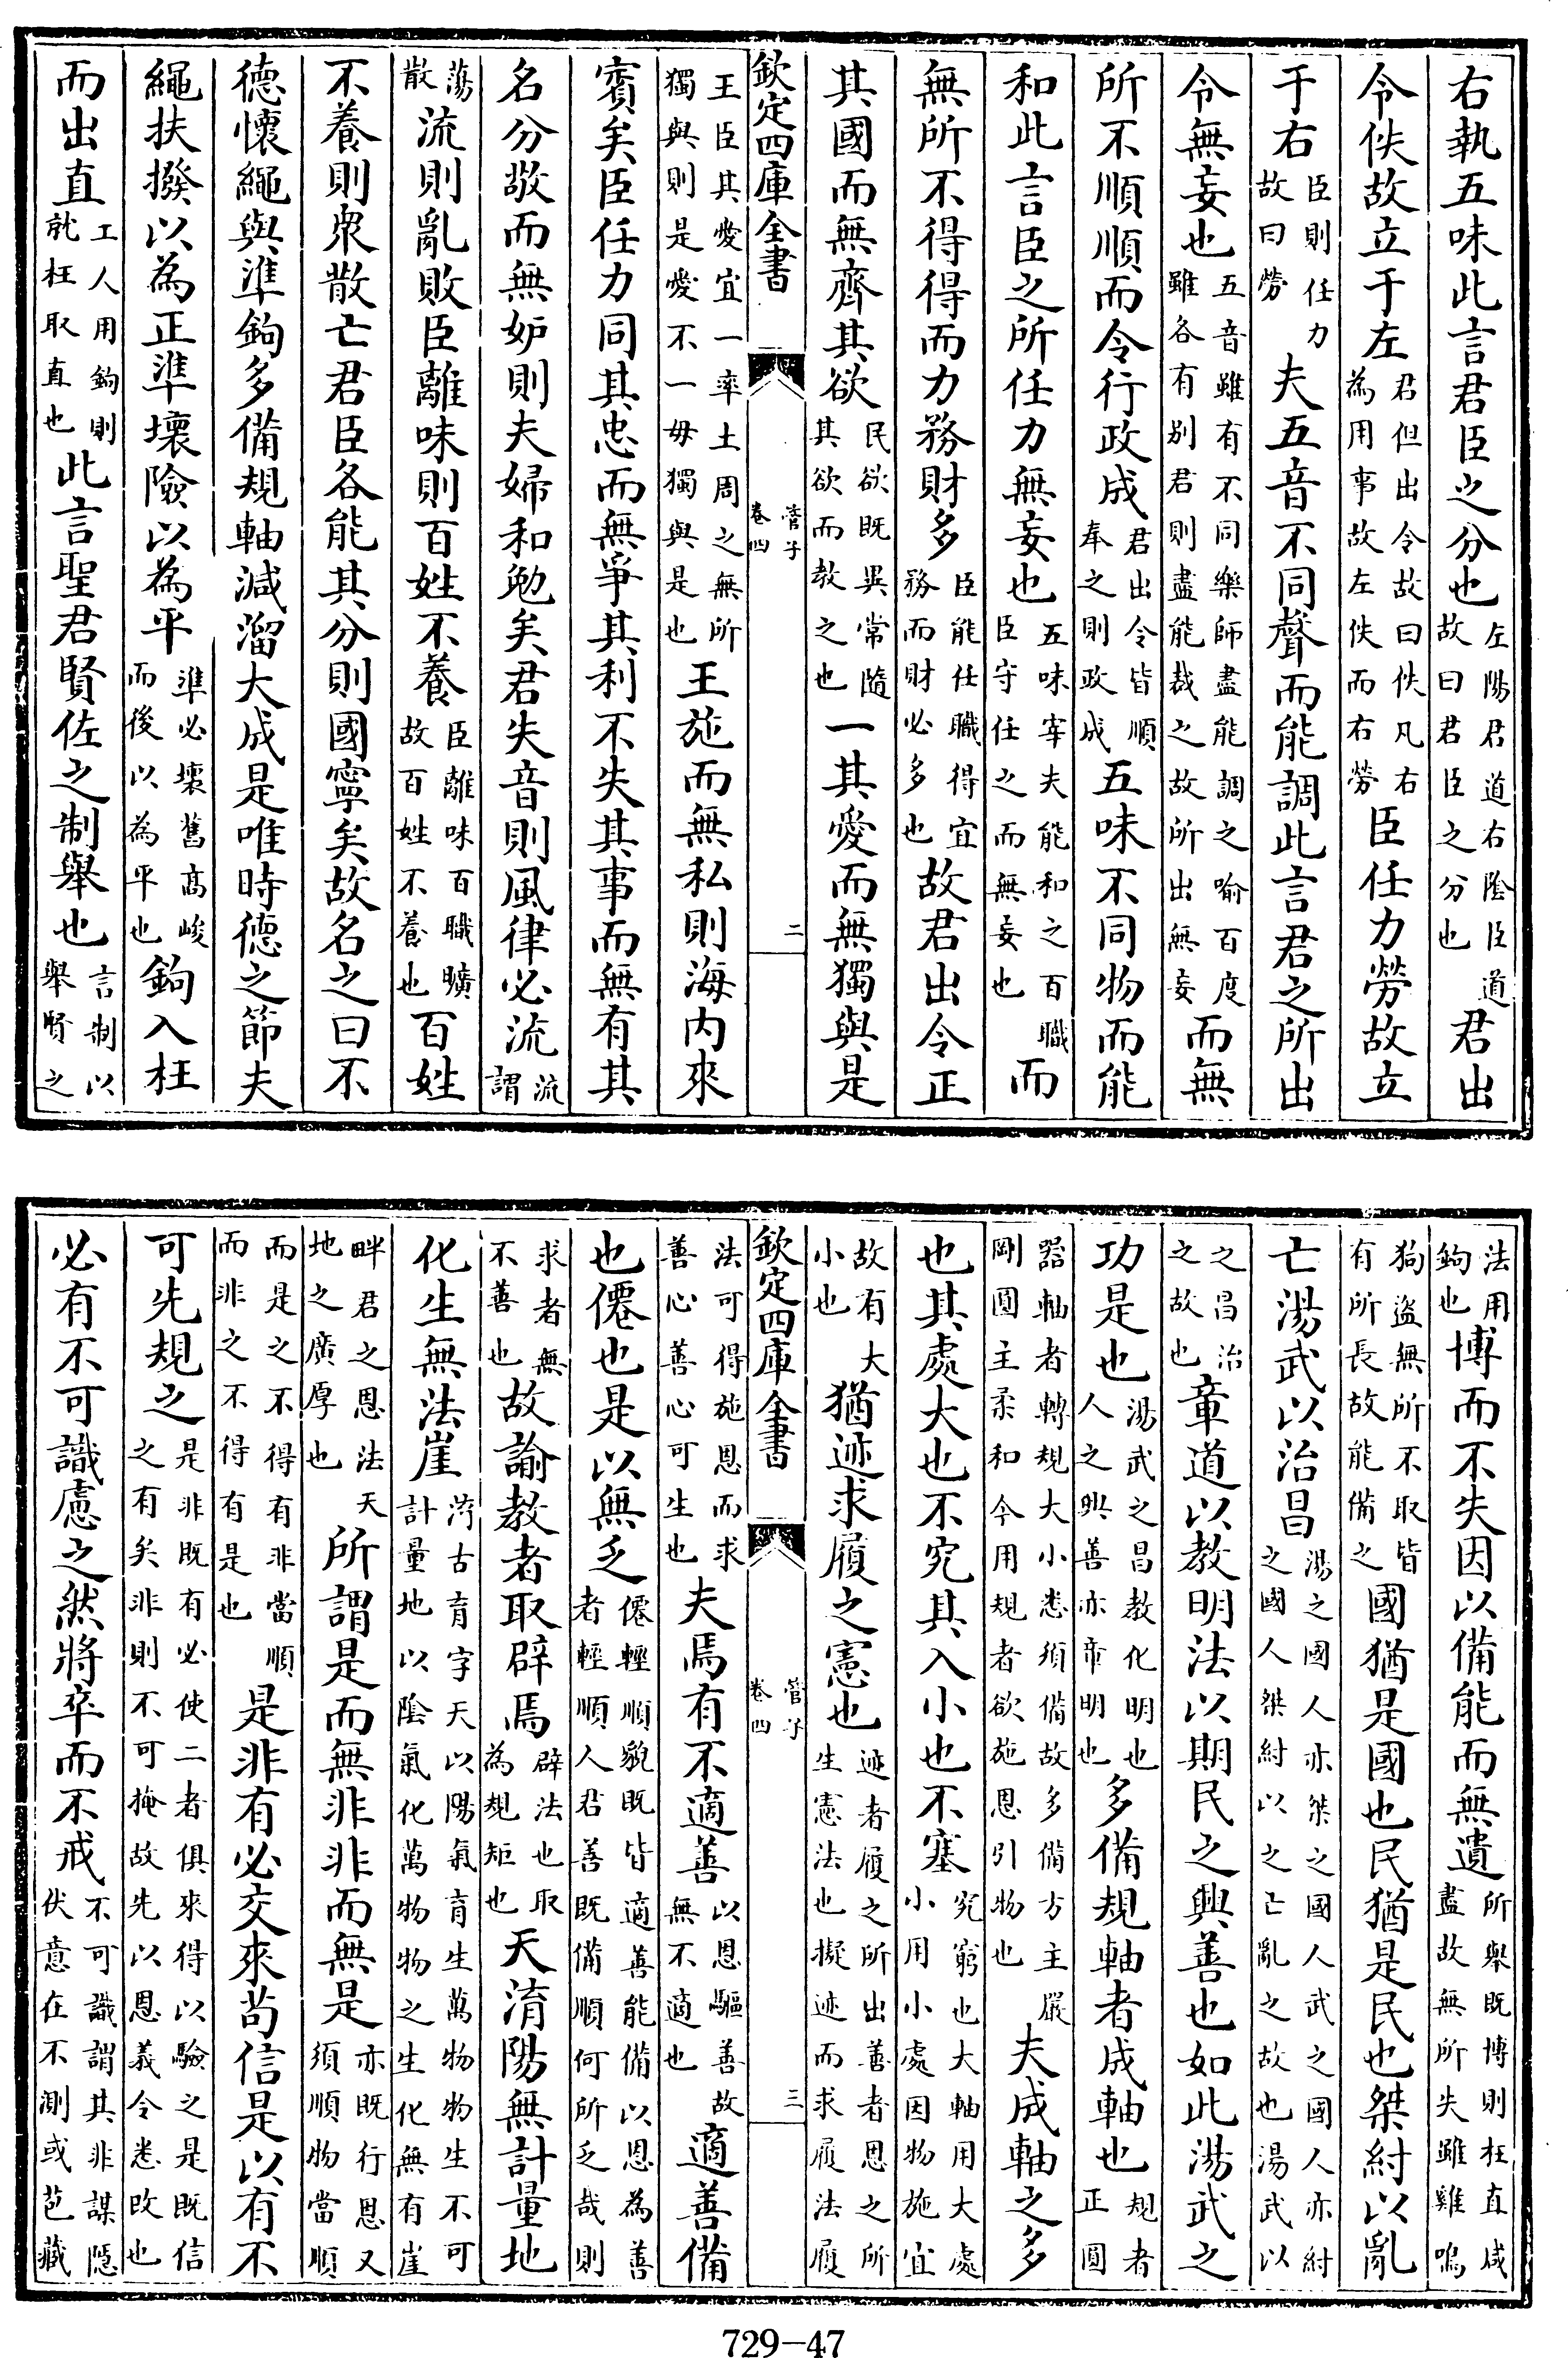 右執五味此言君臣之分也左陽君道右陰臣道故曰君臣之分也君出
令佚故立于左君但出令故曰佚凡右為用事故左佚而右勞臣任力勞故立
于右臣則任力故曰勞夫五音不同聲而能調此言君之所出
令無妄也五音雖有不同樂師盡能調之喻百度雖各有別君則盡能裁之故所出無妄而無
所不順順而令行政成君出令皆順奉之則政成五味不同物而能
和此言臣之所任力無妄也五味宰夫能和之百職臣守任之而無妄也而
無所不得得而力務財多臣能任職得宜務而財必多也故君出令正
其國而無齊其欲民欲既異常隨其欲而教之也一其愛而無獨與是
欽定四庫全書 管子 卷四 二
王臣其愛宜一率土周之無所獨與則是愛不一毋獨與是也王施而無私則海內來
賓矣臣任力同其忠而無爭其利不失其事而無有其
名分敬而無妒則夫婦和勉矣君失音則風律必流流謂
蕩散流則亂敗臣離味則百姓不養臣離味百職曠故百姓不養也百姓
不養則衆散亡君臣各能其分則國寧矣故名之曰不
德懷繩與準鉤多備規軸減溜大成是唯時德之節夫
繩扶撥以為正準壞險以為平準必壞舊高峻而後以為平也鉤入枉
而出直工人用鉤則就枉取直也此言聖君賢佐之制舉也言制以舉賢之
法用鉤也博而不失因以備能而無遺所舉既博則枉直咸盡故無所失雖雞鳴
狗盜無所不取皆有所長故能備之國猶是國也民猶是民也桀紂以亂
亡湯武以治昌湯之國人亦桀之國人武之國人亦紂之國人桀紂以之亡亂之故也湯武以
之昌治之故也章道以教明法以期民之興善也如此湯武之
功是也湯武之昌教化明也人之興善亦帝明也多備規軸者成軸也規者正圓
器軸者轉規大小悉須備故多備方主嚴剛圓主柔和今用規者欲施恩引物也夫成軸之多
也其處大也不究其入小也不塞究窮也大軸用大處小用小處因物施宜
故有大小也猶迹求履之憲也迹者履之所出善者恩之所生憲法也擬迹而求履法履
欽定四庫全書 管子 卷四 三
法可得施恩而求善心善心可生也夫焉有不適善以恩驅善故無不適也適善備
也僊也是以無乏僊輕順貌既皆適善能備以恩為善者輕順人君善既備順何所乏哉則
求者無不善也故諭教者取辟焉辟法也取為規矩也天淯陽無計量地
化生無法崖淯古育字天以陽氣育生萬物物生不可計量地以陰氣化萬物物之生化無有崖
畔君之恩法天地之廣厚也所謂是而無非非而無是亦既行恩又須順物當順
而是之不得有非當順而非之不得有是也是非有必交來苟信是以有不
可先規之是非既有必使二者俱來得以驗之是既信之有矣非則不可掩故先以恩義令悉改也
必有不可識慮之然將卒而不戒不可識謂其非謀隱伏意在不測或苞藏
729-47